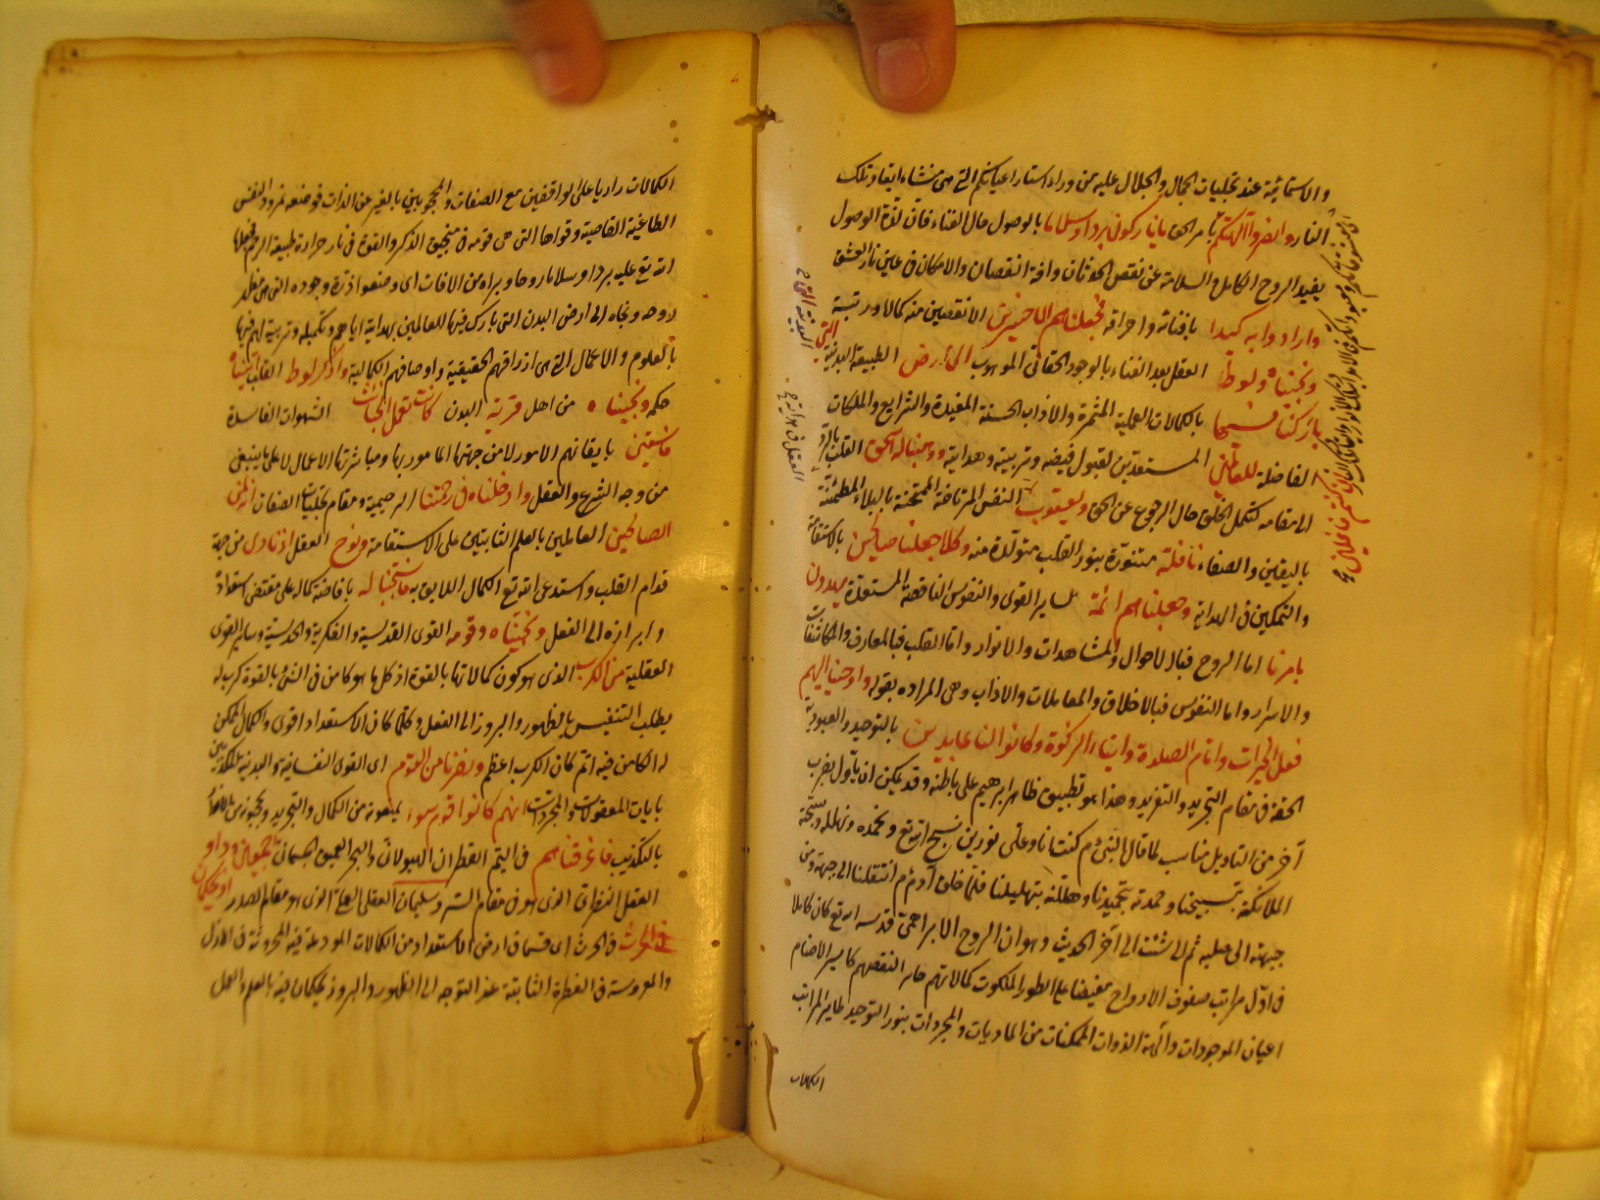 والاستتمائية عند تجليات الجمال والجلال عليه من وراء استار اعيانكم التي هي منشاء ايقاد تلك
النار وانصروا آلهتكم بامر الحق يا نار كوني بردا وسلاما بالوصول حال الفناء فان لذة الوصول
يفيد الروح الكامل والسلامة عن نقص الحدثان وآفة النقصان والامكان في عين نار العشق
وارادوا به كيدا بافنائه واحراقه فجعلناهم الاخسرين الانقصين منه كمالا ورتبة
ونجيناه ولوطا العقل بعد الفناء بالوجود الحقاني الموهوب الى الارض الطبيعة البدنية التي
باركنا فيها بالكمالات العملية المثمرة والآداب الحسنة المفيدة والشرايع والملكات
الفاضلة للعالمين المستعدين لقبول فيضه وتربيته وهدايته ووهبنا له اسحق القلب بالرد
الى مقامه لتكميل الخلق حال الرجوع عن الحق ويعقوب النفس المرتاضة الممتحنة بالبلاء المطمئنة
باليقين والصفاء نافلة متنورة بنور القلب متولدة منه وكلا جعلنا صالحين بالاستقامة
والتمكين في الهداية وجعلناهم ائمة لساير القوى والنفوس الناقصة المستعدة يهدون
بامرنا اما الروح فبالاحوال والمشاهدات والانوار واما القلب فبالمعارف والمكاشفات
والاسرار واما النفوس فبالاخلاق والمعاملات والآداب وهي المرادة بقوله واوحينا اليهم
فعل الخيرات واقام الصلوة وايتاء الزكوة وكانوا لنا عابدين بالتوحيد والعبودية
الحقة في مقام التجريد والتفريد وهذا هو تطبيق ظاهر ابرهيم على باطنه وقد يمكن ان يأول بضرب
آخر من التاويل مناسب لما قال النبي كنت انا وعلي نورين نسبح الله تع ونحمده ونهلله وسبحته
الملائكة بتسبيحنا وحمدته بتحميدنا وهللته بتهليلنا فلما خلق آدم انتقلنا الى جبهته ومن
جبهته الى صلبه ثم الى شيث الى آخر الحديث وهو ان الروح الابراهيمي قدسه الله تع كان كاملا
في اول مراتب صفوف الارواح مفيضا على اطوار الملكوت كمالاتهم جابر النقصهم كاسر الاصنام
اعيان الموجودات وآلهة الذوات الممكنات من الماديات والمجردات بنور التوحيد المراتب
الكمالات
البدنية التي
العقل في هدايته
الكمالات راد يا على الواقفين مع الصفات والمحجوبين بالغير عن الذات فوضعه نمرود النفس
الطاغية العاصية وقواها التي هي قومه في منجنيق الذكر والقوة في نار حرارة طبيعة الرحم فجعلها
الله تع عليه بردا وسلاما روحا وبراءة من الآفات اي وضعوا ذرة وجوده التي هي مظهر
روحه ونجاه الى ارض البدن التي بارك فيها للعالمين بهدايته اياهم وتكميله وتربيته لهم فيها
بالعلوم والاعمال التي هي ارزاقهم الحقيقية واوصافهم الكمالية واذكر لوط القلب آتيناه
حكما ونجيناه من اهل قرية البدن التي كانت تعمل الخبائث الشهوات الفاسدة
فاسقين بايقانهم الامور لا من جهتها المامور بها ومباشرتها الاعمال لا على ما ينبغي
من وجه الشرع والعقل وادخلناه في رحمتنا الرحيمية ومقام تجليات الصفات انه من
الصالحين العالمين بالعلم الثابتين على الاستقامة ونوح العقل اذ نادى من جهة
قدام القلب واستدعى الله تع الكمال اللايق به فاستجبنا له بافاضة كماله على مقتضى استعداده
وابرازه الى الفعل ونجيناه وقومه القوى القدسية والفكرية والحدسية وساير القوى
العقلية من الكرب الذي هو كون كمالاتها بالقوة اذ كل ما هو كامن في الشئ بالقوة كرب له
يطلب التنفيس بالظهور والبروز الى الفعل وكلما كان الاستعداد اقوى والكمال الممكن
له الكامن فيه اتم كان الكرب اعظم ونصرناه من القوم اي القوى النفسانية والبدنية المكذبين
بآيات المعقولات والمجردات انهم كانوا قوم سوء يمنعونه من الكمال والتجريد ويحجبونه عن الانوار
بالتكذيب فاغرقناهم في اليم القطران الهيولاني والبحر العميق الجسماني اجمعين وداود
العقل النظري الذي هو في مقام السر وسليمان العقل العملي الذي هو مقام الصدر اذ يحكمان
في الحرث اي فيما في ارض الاستعداد من الكمالات المودعة فيه المخزونة في الازل
والمغروسة في الفطرة الثابتة عند التوجه الى الظهور والبروز يحكمان فيه بالعلم والعمل